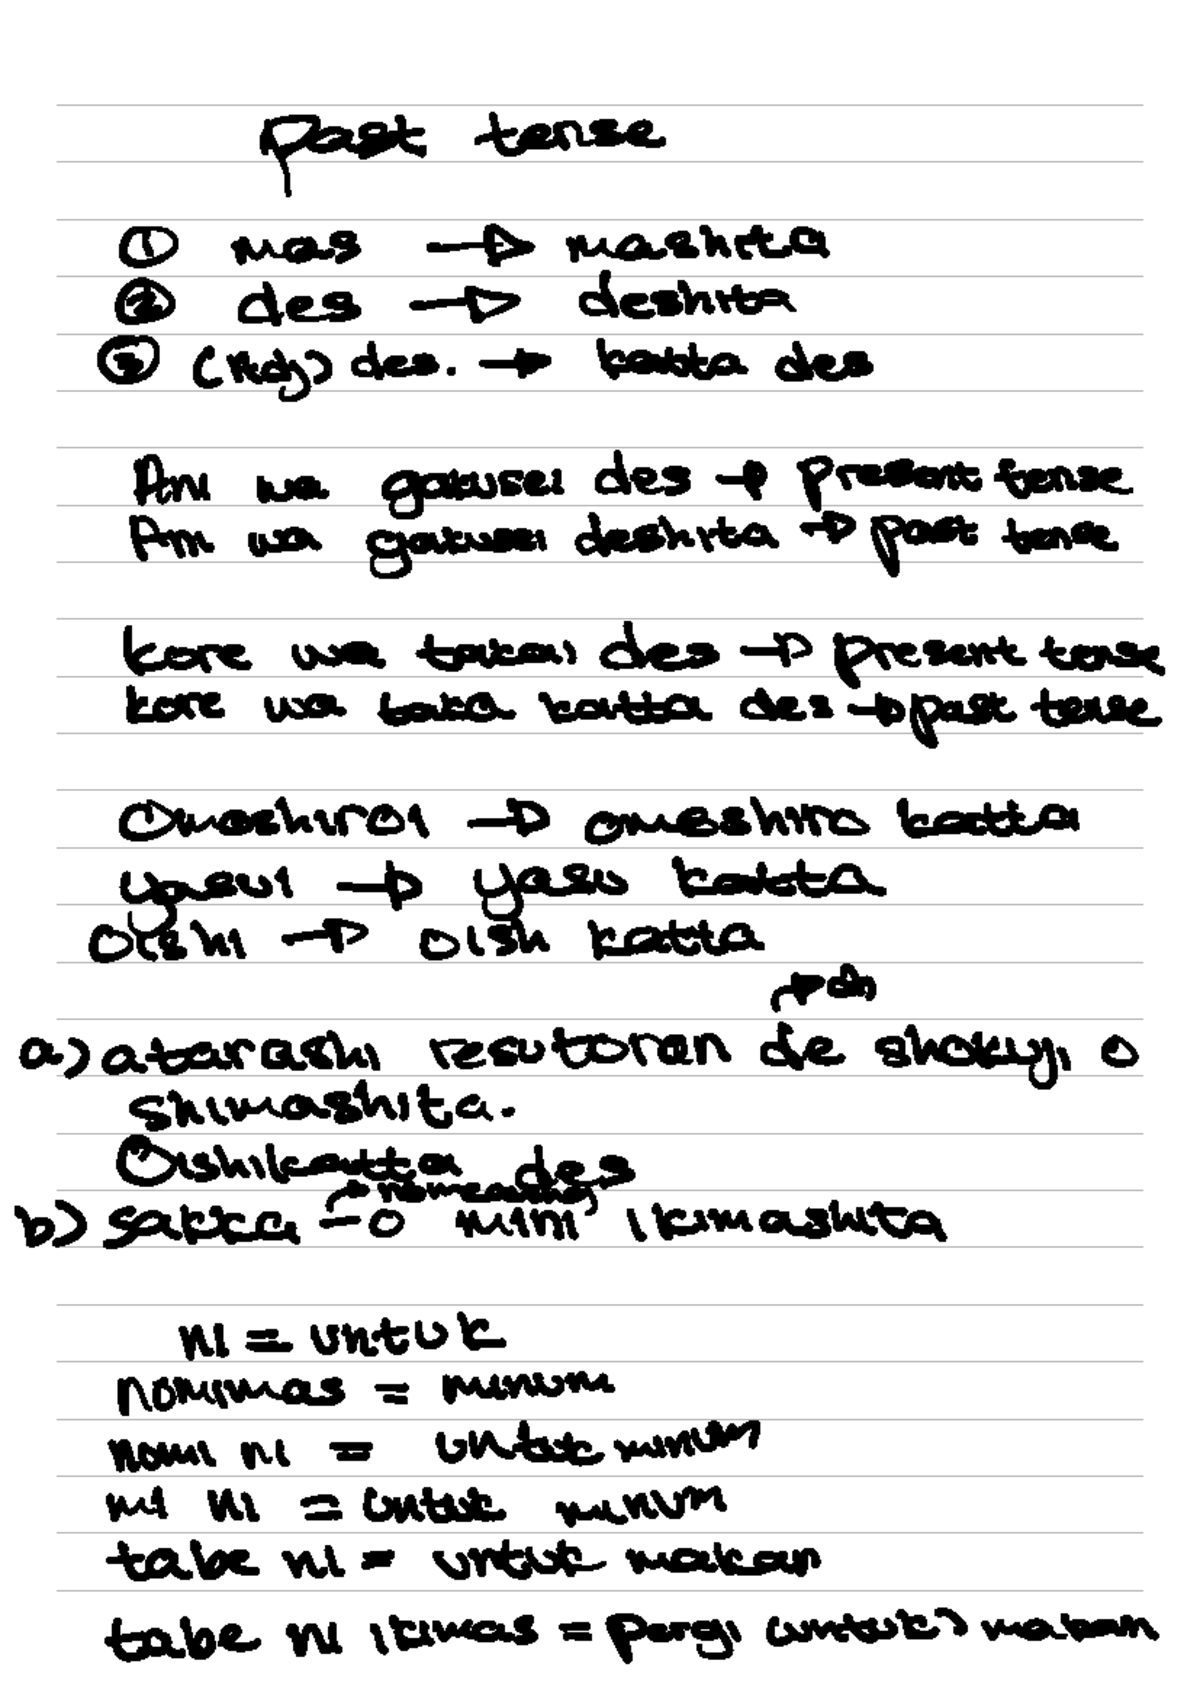 Past tense
① mas → mashita
② des → deshita
③ (Adj) des. → katta des
Ani wa gakusei des → present tense
Ani wa gakusei deshita → past tense
kore wa takai des → present tense
kore wa taka katta des → past tense
Omoshiroi → omoshiro katta
yasui → yasu katta
oishi → oish katta
→ di
a) atarashi resutoran de shokuji o
shimashita.
Oishikatta des
b) sakka - o mini ikimashita
ni = untuk
nomimas = minum
nomi ni = untuk minum
mi ni = untuk minum
tabe ni = untuk makan
tabe ni ikimas = pergi (untuk) makan